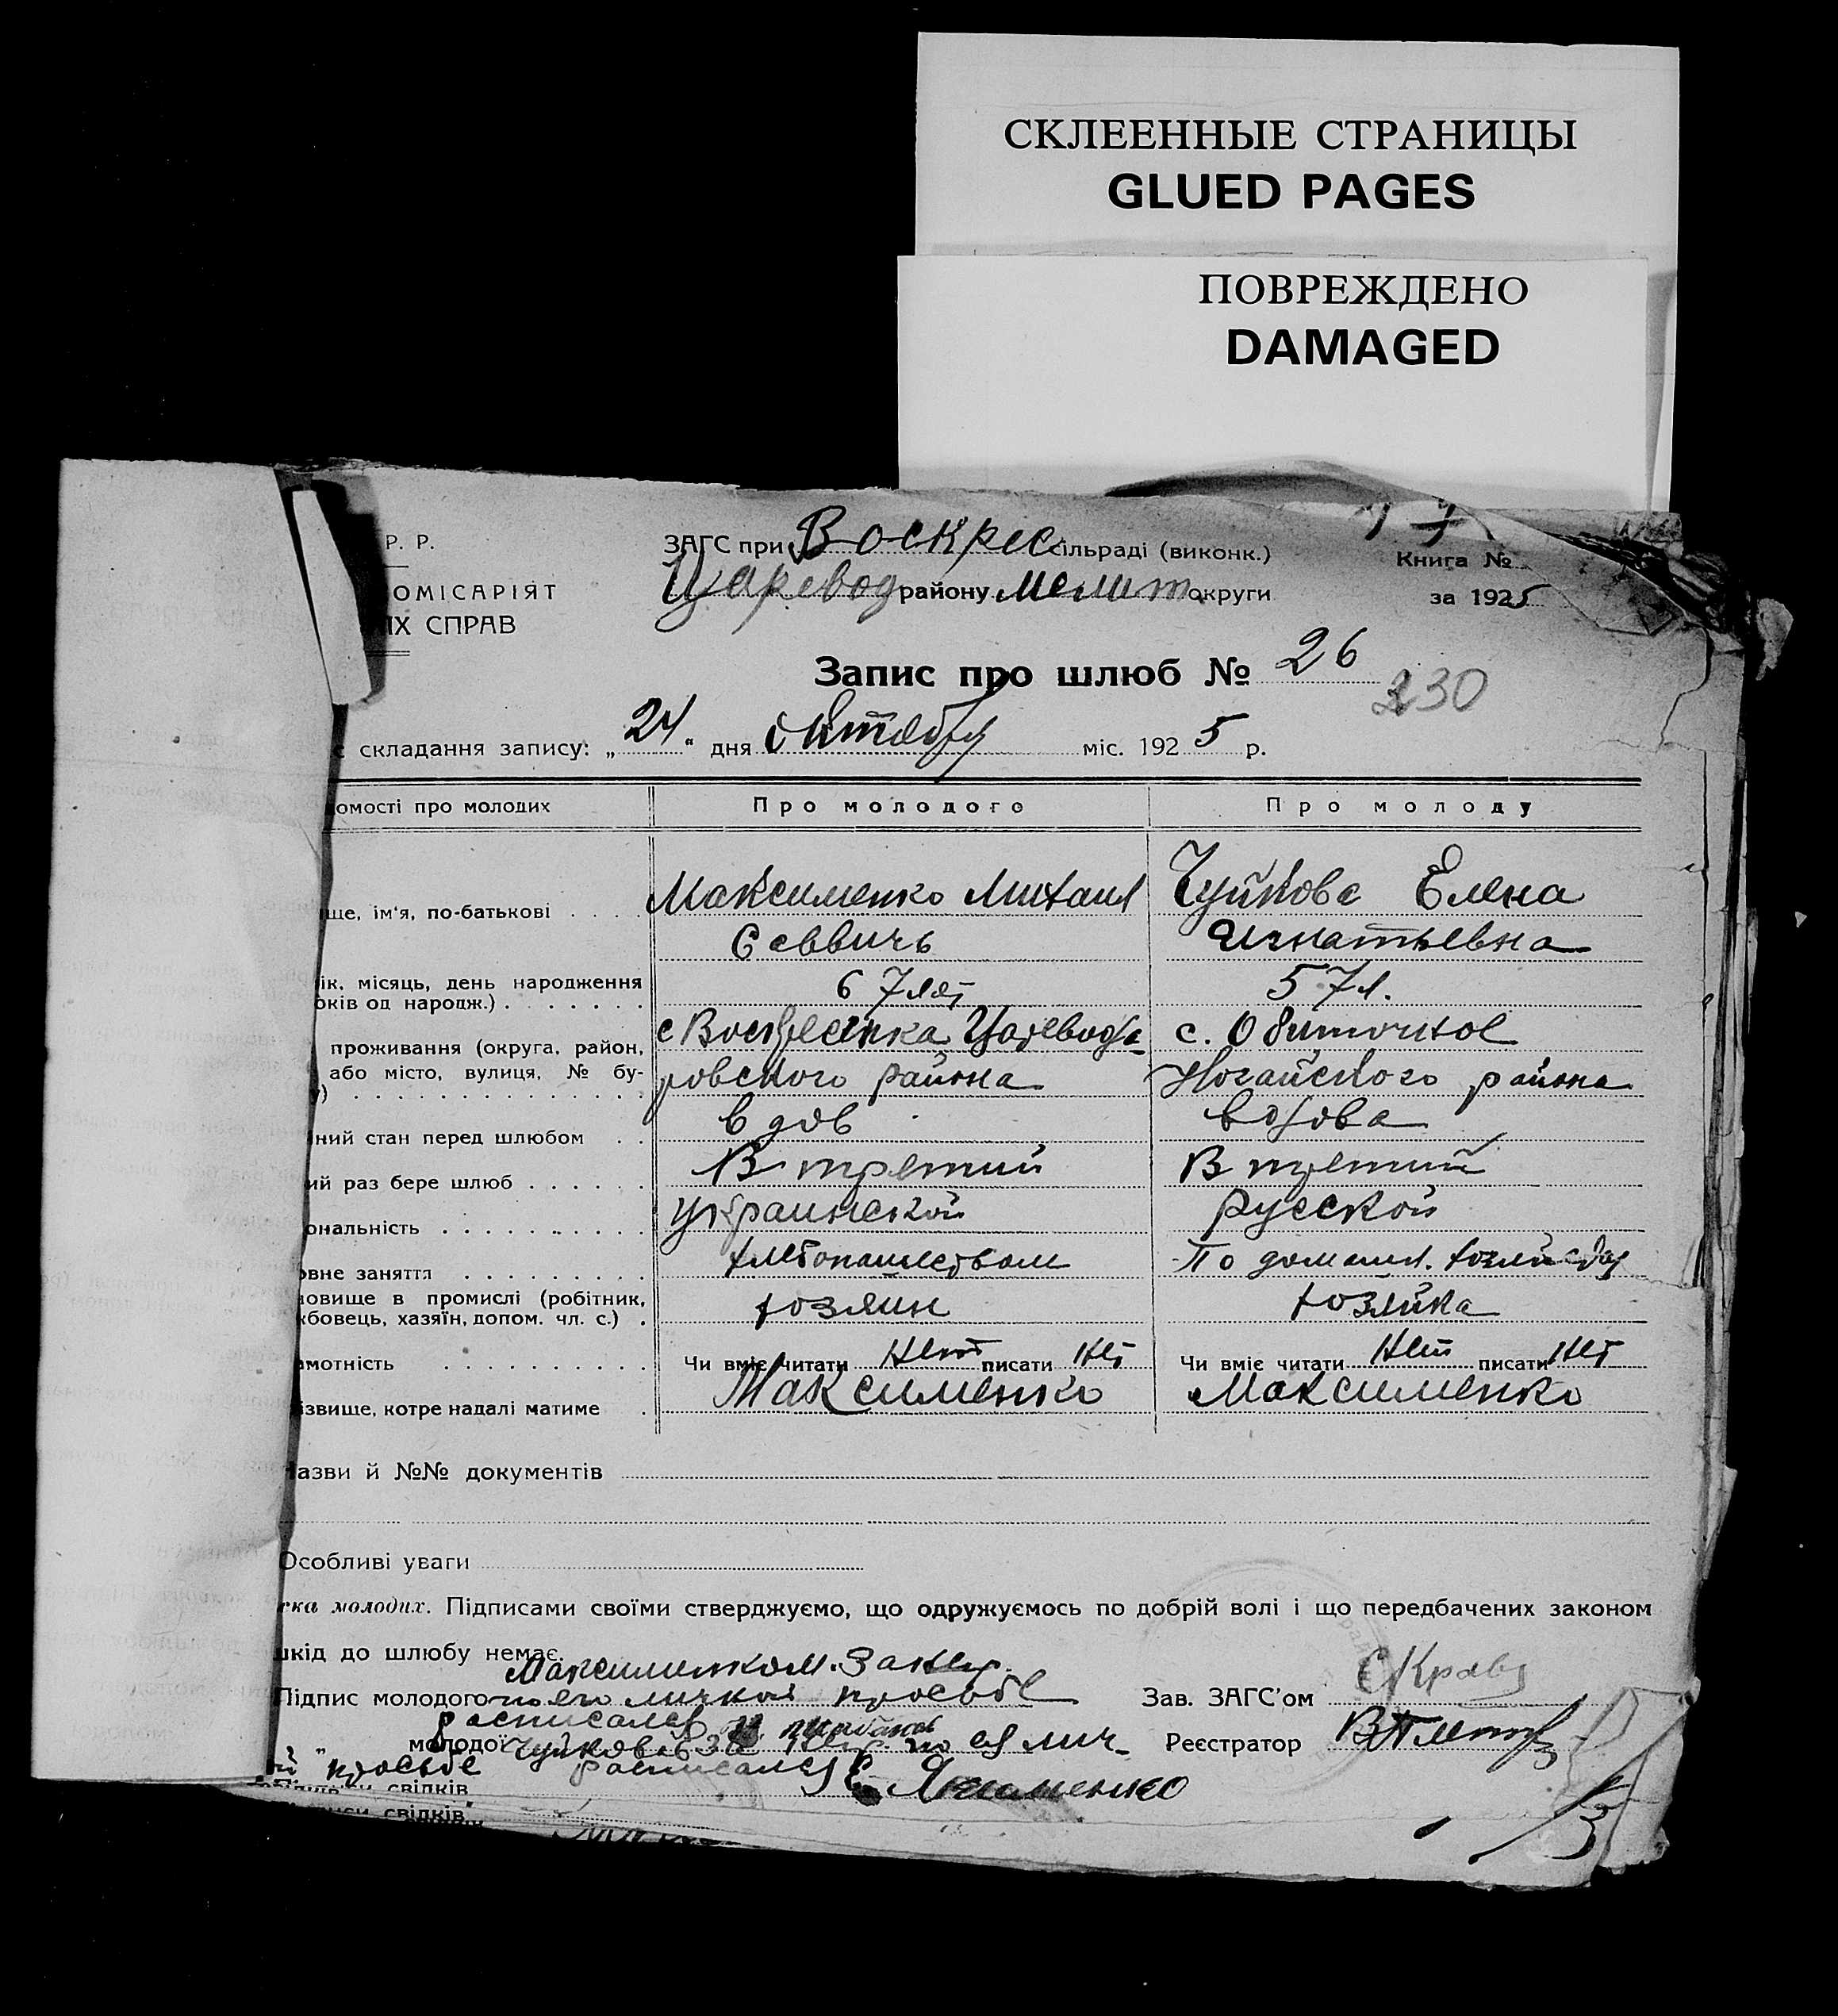 СКЛЕЕННЫЕ СТРАНИЦЫ
GLUED PAGES
ПОВРЕЖДЕНО
DAMAGED
Р. Р.
ОМІСАРІЯТ
ИХ СПРАВ
ЗАГС при Воскрес сільраді (виконк.)
Царевод району Мелит округи
Книга №
за 1925
Запис про шлюб № 26
230
складання запису: „24“ дня Октября міс. 1925 р.
омості про молодих
Про молодого
Про молоду
ще, ім'я, по-батькові . . . .
Максименко Михаил
Саввичь
Чуйкова Елена
Игнатьевна
ік, місяць, день народження
оків од народж.) . . . . . . .
67 лет
57 л.
проживання (округа, район,
або місто, вулиця, № бу-
у) . . . . . . . . . . . . . .
с Воскресенка Царевода
ровского района
с. Обиточное
Ногайского района
ний стан перед шлюбом . .
вдов
вдова
ий раз бере шлюб . . . . . .
В третий
В третий
ональність . . . . . . . . . .
украинской
русской
овне заняття . . . . . . . . .
хлебопашеством
По домашн.
овище в промислі (робітник,
жбовець, хазяїн, допом. чл. с.) .
хозяин
хозяйка
амотність . . . . . . . . . . .
Чи вміє читати нет писати нет
Чи вміє читати нет писати нет
ізвище, котре надалі матиме .
Максименко
Максименко
Назви й №№ документів
Особливі уваги
ка молодих. Підписами своїми стверджуємо, що одружуємось по добрій волі і що передбачених законом
шкід до шлюбу немає.
Максименком. за негр.
Підпис молодого по его личной просьбе
Зав. ЗАГС'ом
расписался
„ молодої Чуйковов за негр. по ея лич-
Реєстратор
ой просьбе расписался Е. Якименко
свідків
свідків